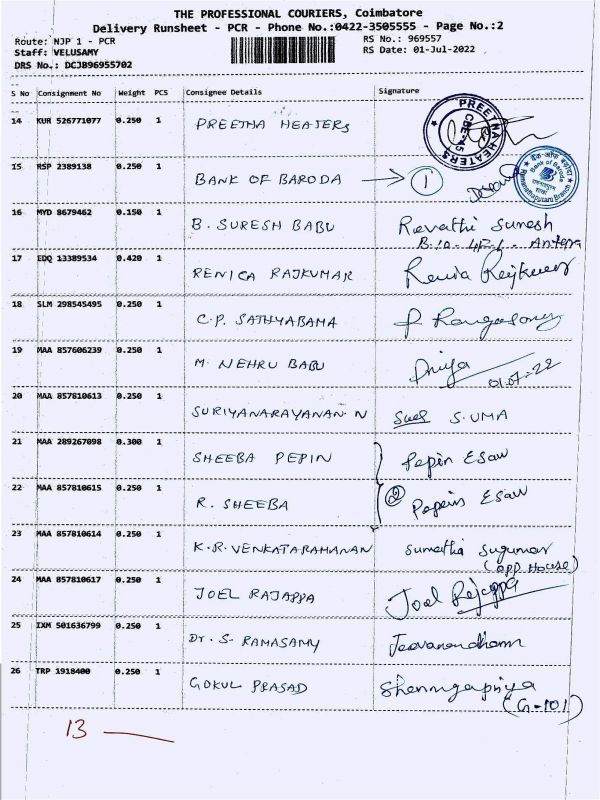 THE PROFESSIONAL COURIERS, Coimbatore
Delivery Runsheet - PCR - Phone No.:0422-3505555 - Page No.:2
Route: NJP 1 - PCR RS No.: 969557
Staff: VELUSAMY RS Date: 01-Jul-2022
DRS No.: DCJB96955702
S No Consignment No Weight PCS Consignee Details Signature
14 KUR 526771077 0.250 1 PREETHA HEATERS PREETHA HEATERS CBE-45
15 RSP 2389138 0.250 1 BANK OF BARODA → 1 बैंक ऑफ़ बड़ौदा Bank of Baroda Ramanathapuram Branch
16 MYD 8679462 0.150 1 B. SURESH BABU Revathi Suresh
17 EDQ 13389534 0.420 1 RENICA RAJKUMAR Renica Rajkumar
18 SLM 298545495 0.250 1 C.P. SATHYABAMA P Rangasamy
19 MAA 857606239 0.250 1 M. NEHRU BABU Priya
01.07.22
20 MAA 857810613 0.250 1 SURIYANARAYANAN. N S. UMA
21 MAA 289267098 0.300 1 SHEEBA PEPIN Pepin Esaw
22 MAA 857810615 0.250 1 R. SHEEBA 2 Pepin Esaw
23 MAA 857810614 0.250 1 K.R. VENKATARAMANAN Sumathi Sugumar
(opp House)
24 MAA 857810617 0.250 1 JOEL RAJAPPA Joel Rajappa
25 IXM 501636799 0.250 1 Dr. S. RAMASAMY Jeevanandham
26 TRP 1918400 0.250 1 GOKUL PRASAD Shenngapriya
(G-101)
13